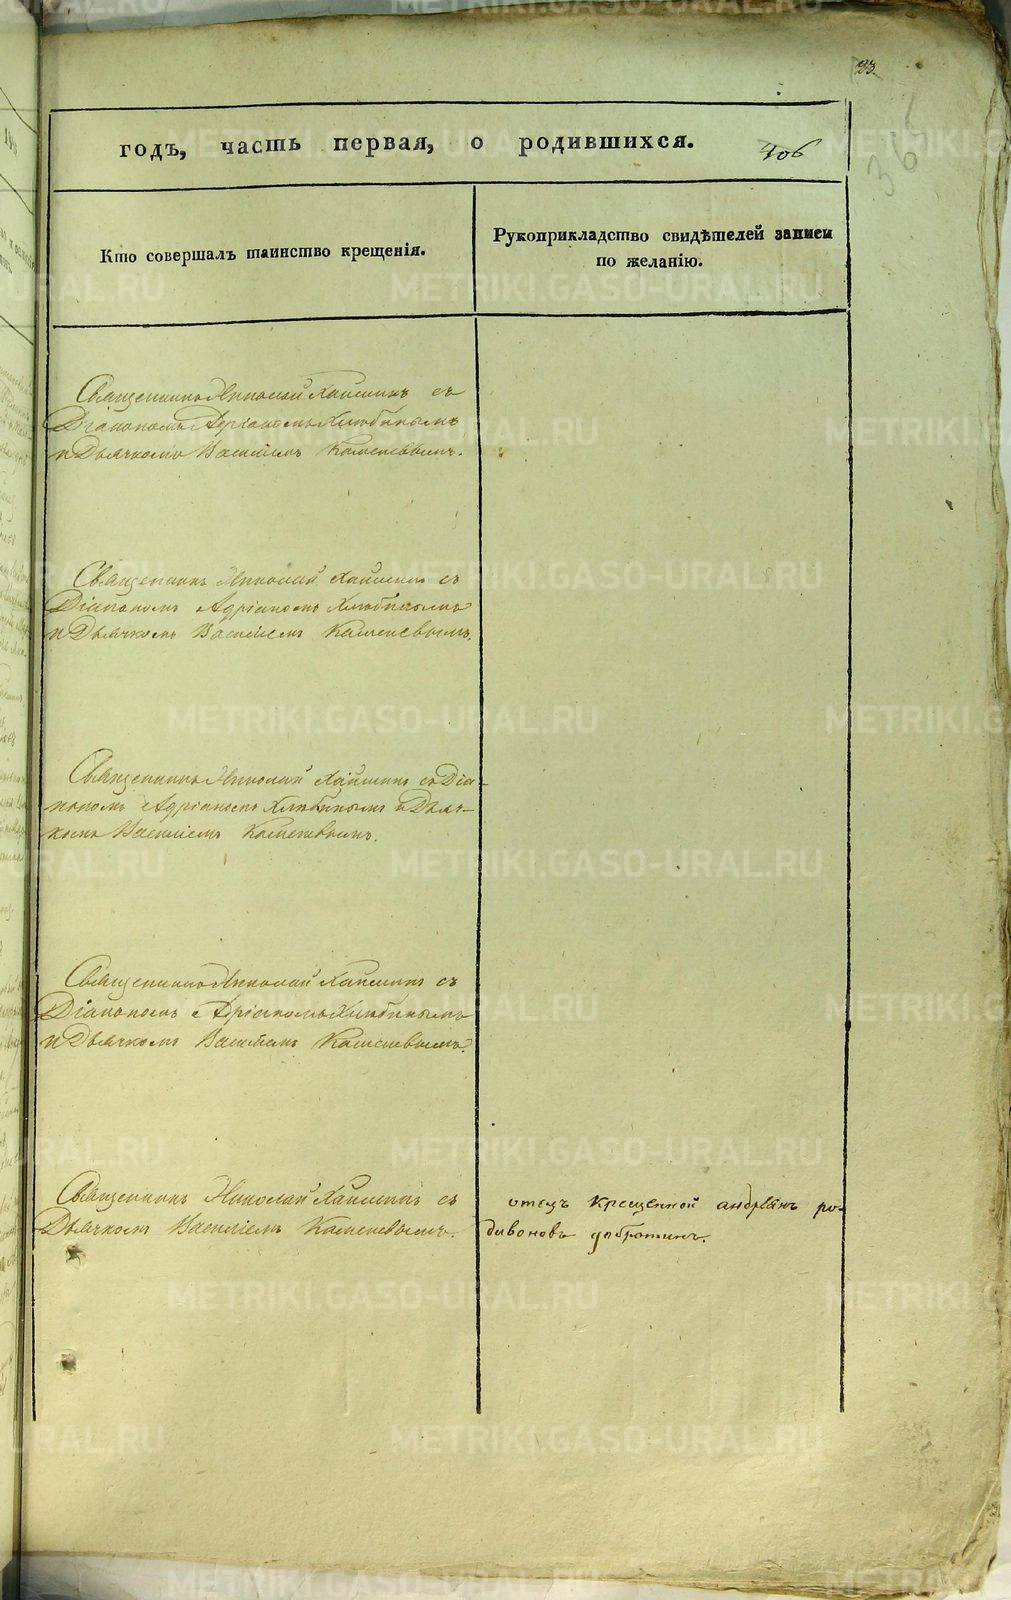 23.
годъ, часть первая, о родившихся. 406
Кто совершалъ таинство крещенія.
Рукоприкладство свидѣтелей записи
по желанію.
Священникъ Николай съ
Діакономъ Адріаномъ
и Дьячкомъ Василіемъ Каменевымъ.
Священникъ Николай съ
Діакономъ Адріаномъ
и Дьячкомъ Василіемъ Каменевымъ.
Священникъ Николай съ Діа-
кономъ Адріаномъ и Дьяч-
комъ Василіемъ Каменевымъ.
Священникъ Николай съ
Діакономъ Адріаномъ
и Дьячкомъ Василіемъ Каменевымъ.
Священникъ Николай съ
Дьячкомъ Василіемъ Каменевымъ.
отецъ крещенной андреянъ ро-
дивоновъ
METRIKI.GASO-URAL.RU